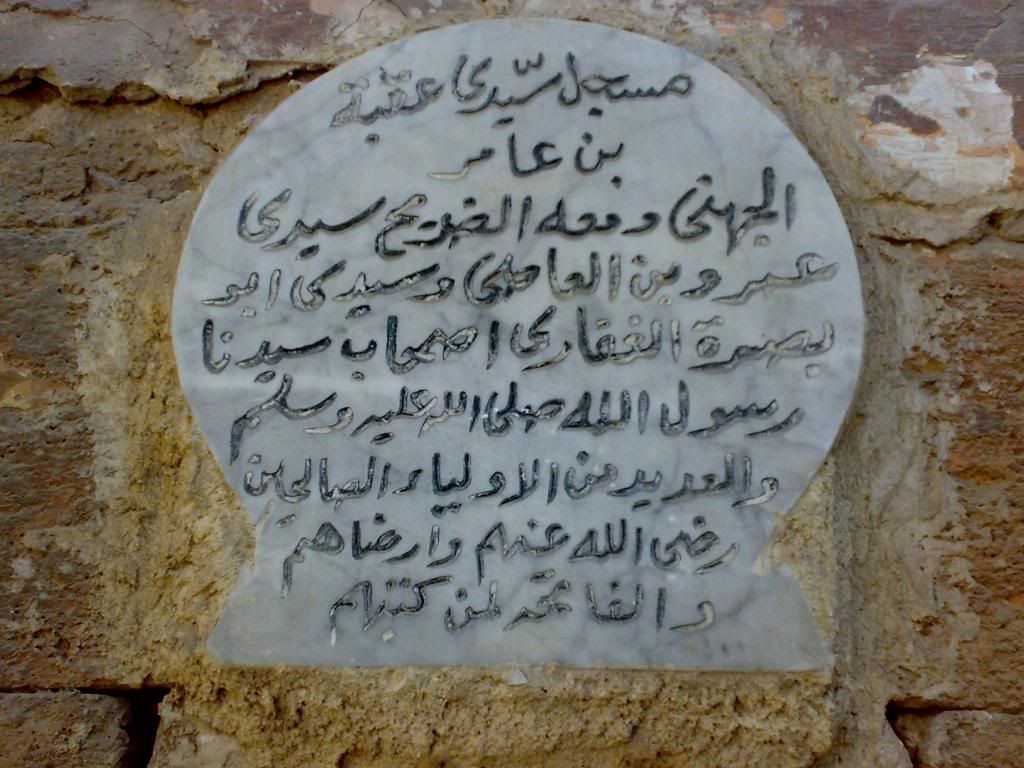 مسجل سيّدى عقبة
بن عامر
الجهنى ومعه الضريح سيدى
عمرو بن العاص وسيدى ابو
بصرة الغفارى اصحاب سيدنا
رسول الله صلى الله عليه وسلم
والعديد من الاولياء الصالحين
رضى الله عنهم وارضاهم
والفاتحه لمن كتبهم